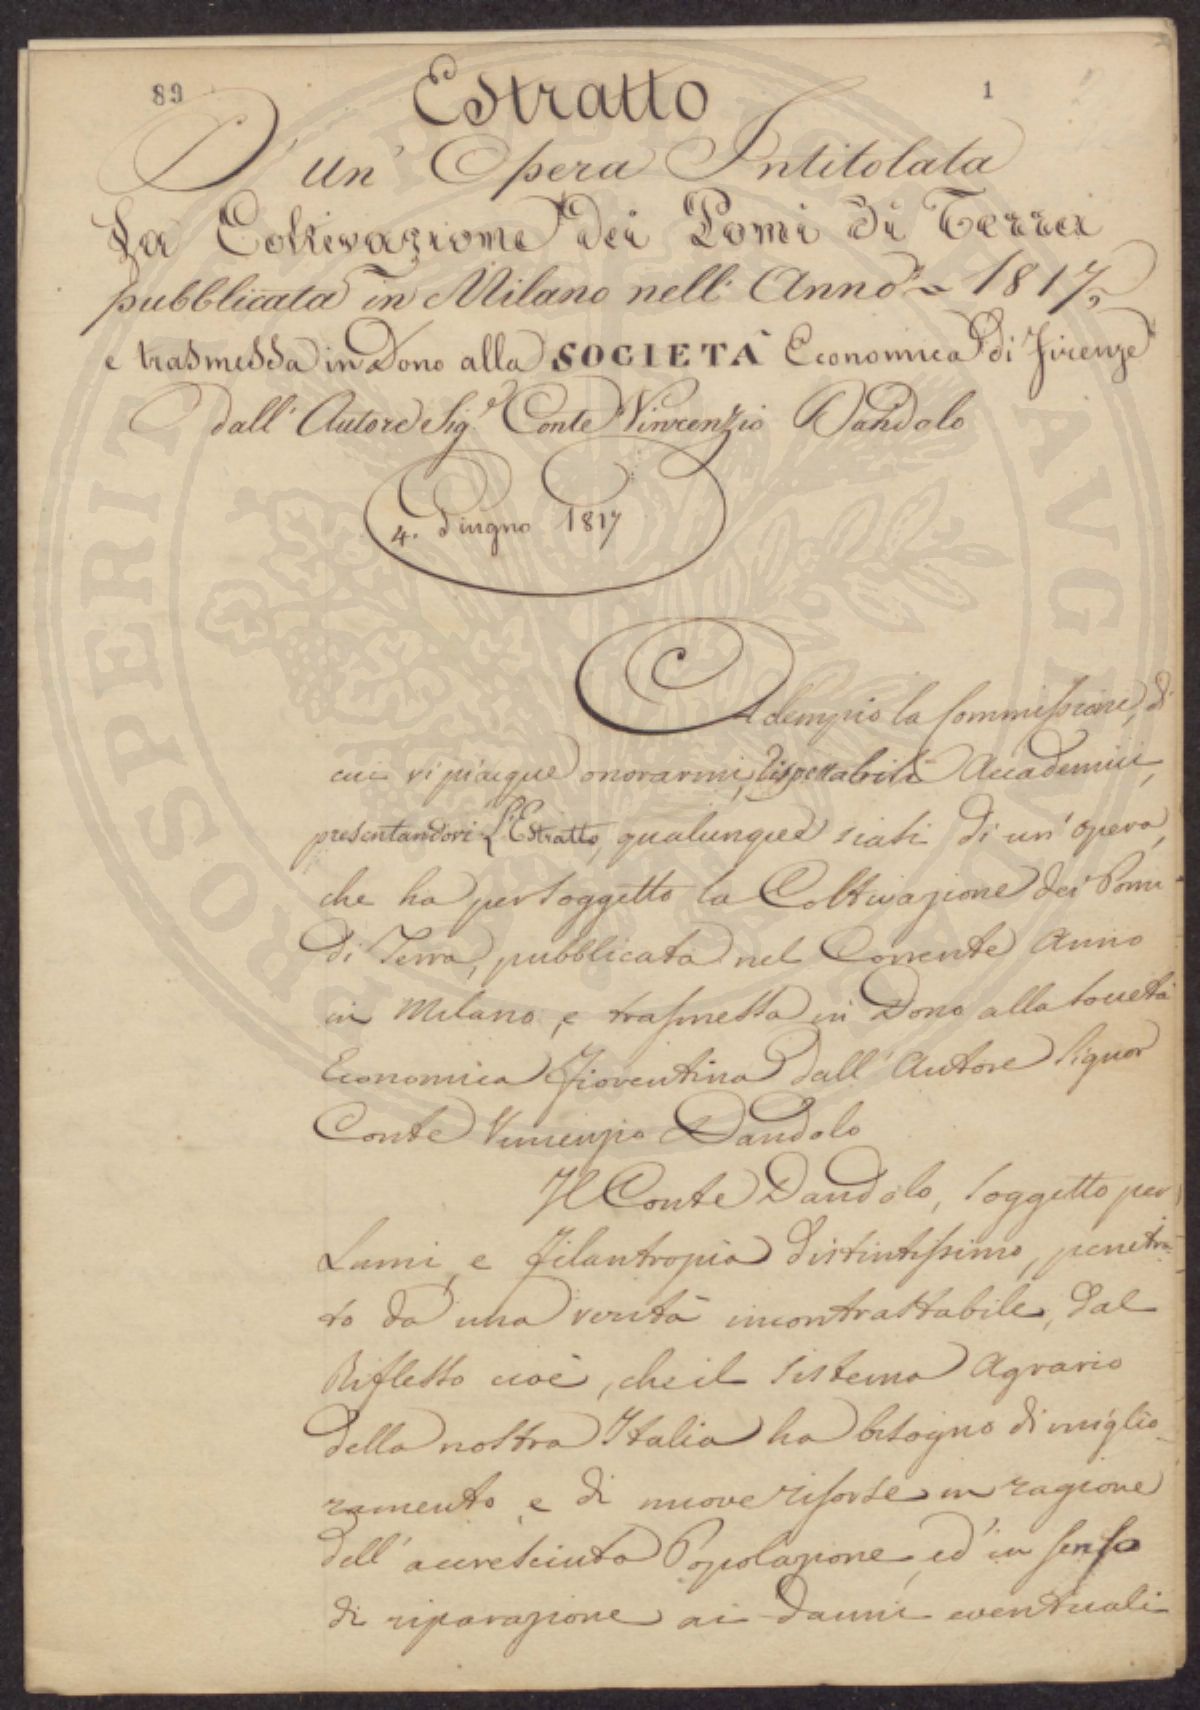 89
1
Estratto
D'un' Opera Intitolata
La Coltivazione dei Pomi di Terra
pubblicata in Milano nell' Anno = 1817,
e trasmessa in Dono alla SOCIETÀ Economica di Firenze
dall' Autore Sig.e Conte Vincenzio Dandolo
4. Giugno 1817
Adempio la Commissione, di
cui vi piacque onorarmi, rispettabili Accademici,
presentandovi L'Estratto, qualunque siasi di un' opera,
che ha per soggetto la Coltivazione dei Pomi
di Terra, pubblicata nel Corrente Anno
in Milano, e trasmessa in Dono alla Società
Economica Fiorentina dall' Autore Signor
Conte Vincenzio Dandolo
Il Conte Dandolo, soggetto per
Lumi, e filantropia distintissimo, penetra-
to da una verità incontrastabile, dal
Riflesso cioè, che il sistema Agrario
della nostra Italia ha bisogno di miglio-
ramento, e di nuove risorse in ragione
dell' accresciuta Popolazione, ed in senso
di riparazione ai danni eventuali
PROSPERITATI PVBLICAE AVGENDAE